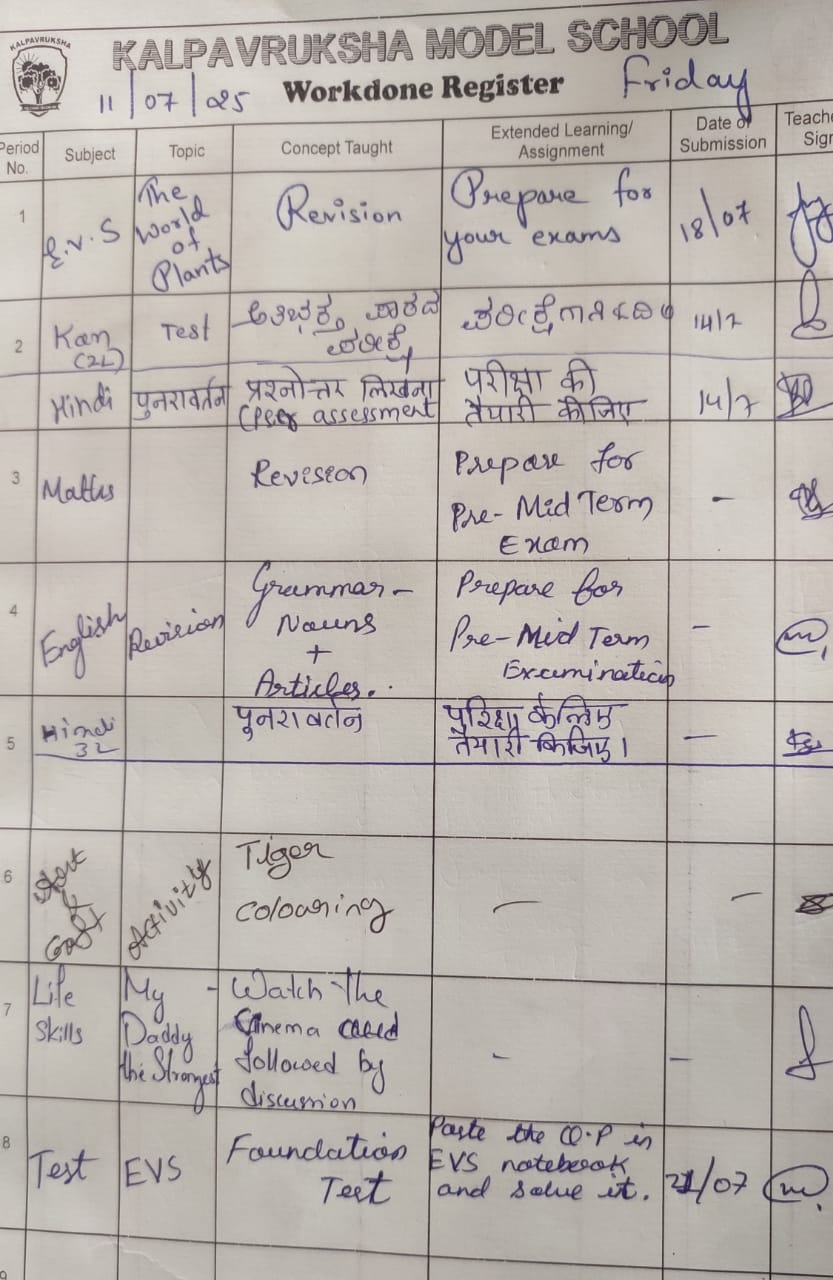 KALPAVRUKSHA
KALPAVRUKSHA MODEL SCHOOL
11/07/25 Workdone Register Friday
Period No. Subject Topic Concept Taught Extended Learning/ Assignment Date of Submission Teache Sign
1 E.V.S The World of Plants Revision Prepare for your exams 18/07
2 Kan (2L) Test 14/7
Hindi पुनरावर्तन प्रश्नोत्तर लिखना (Peer assessment परीक्षा की तैयारी कीजिए 14/7
3 Maths Revision Prepare for Pre-Mid Term Exam -
4 English Revision Grammar - Nouns + Articles. Prepare for Pre-Mid Term Examination -
5 Hindi 3L पुनरावर्तन परिक्षा केलिए तैयारी किजिए। -
6 Activity Tiger Colouring - -
7 Life Skills My Daddy the Strongest - Watch the Cinema followed by discussion - -
8 Test EVS Foundation Test Paste the Q.P in EVS notebook and solve it. 21/07
9